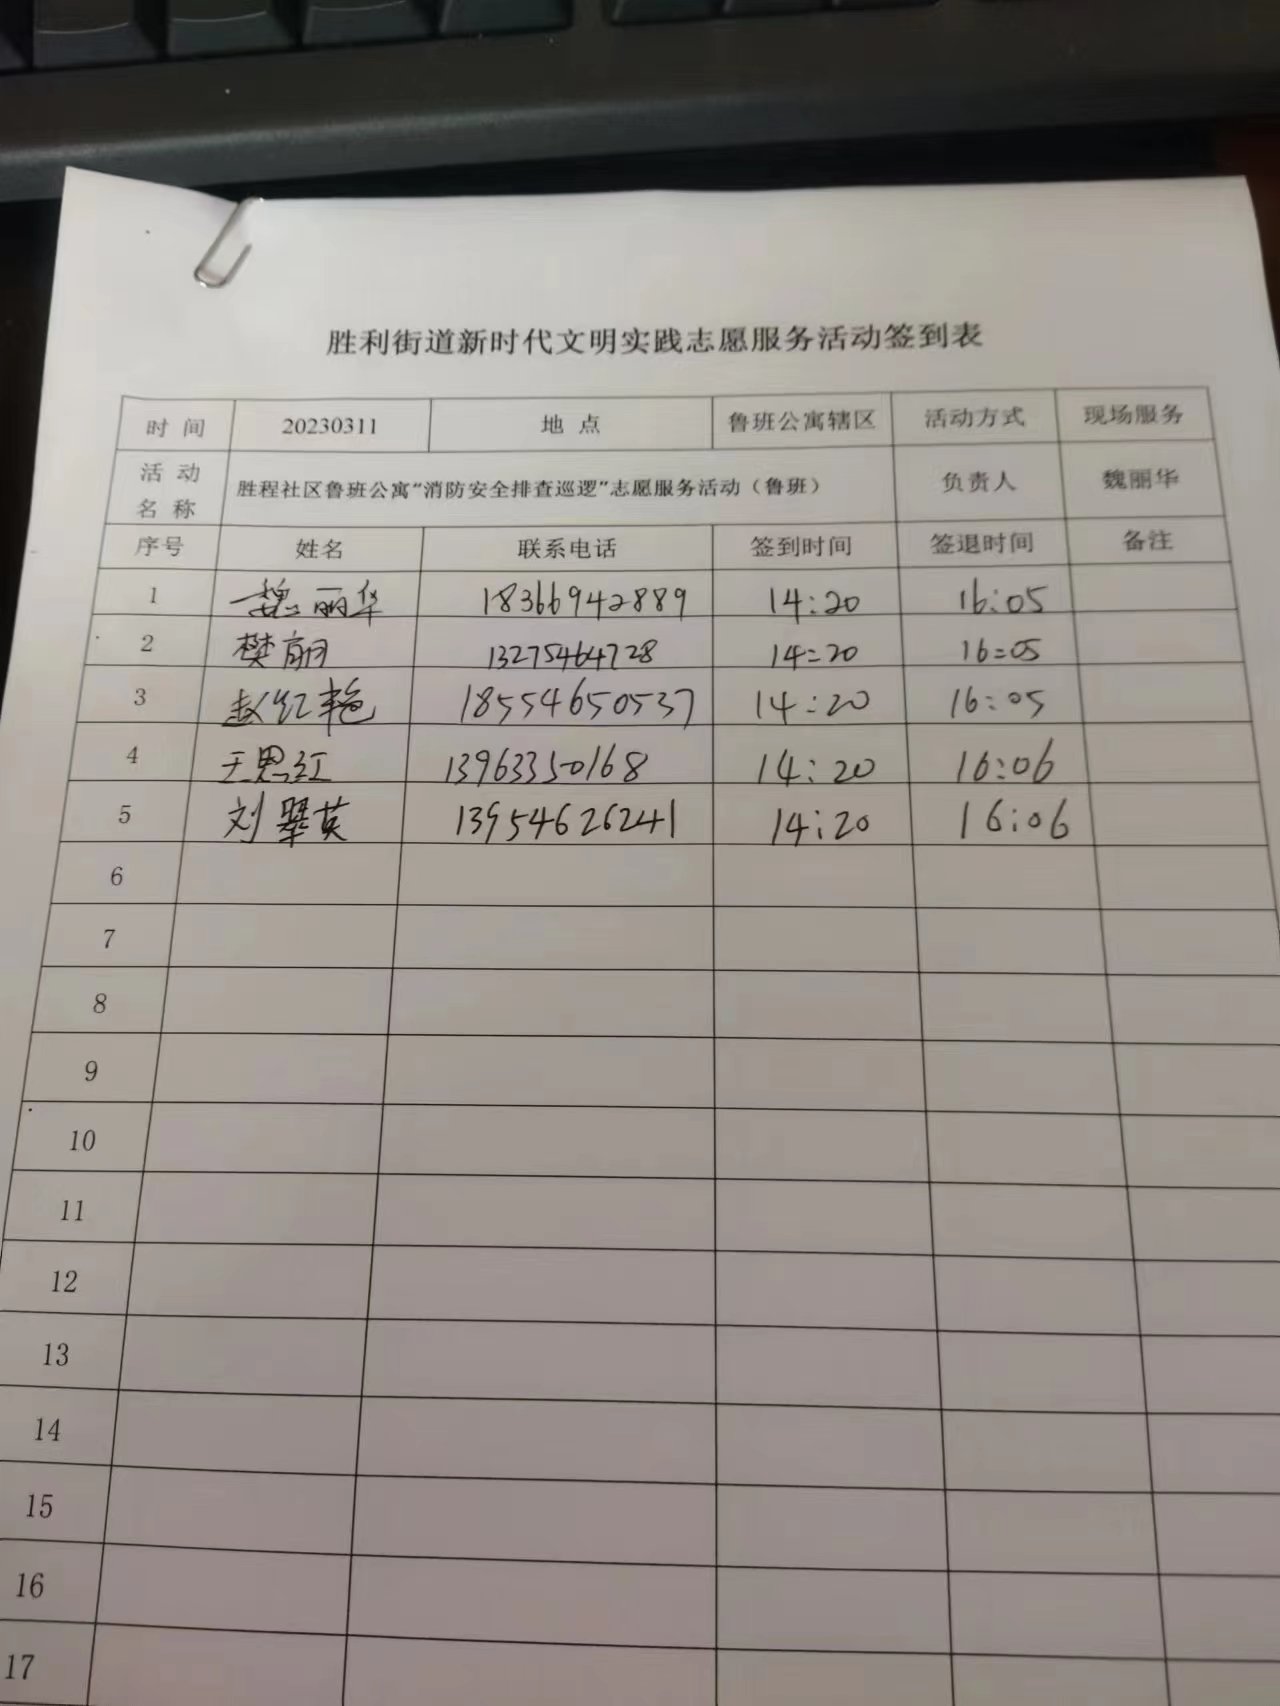 胜利街道新时代文明实践志愿服务活动签到表
时间 20230311 地点 鲁班公寓辖区 活动方式 现场服务
活动名称 胜程社区鲁班公寓“消防安全排查巡逻”志愿服务活动（鲁班） 负责人 魏丽华
序号 姓名 联系电话 签到时间 签退时间 备注
1 魏丽华 18366942889 14:20 16:05
2 樊丽 13275464728 14:20 16:05
3 赵红艳 18554650537 14:20 16:05
4 王思红 13963350168 14:20 16:06
5 刘翠英 13954626241 14:20 16:06
6
7
8
9
10
11
12
13
14
15
16
17